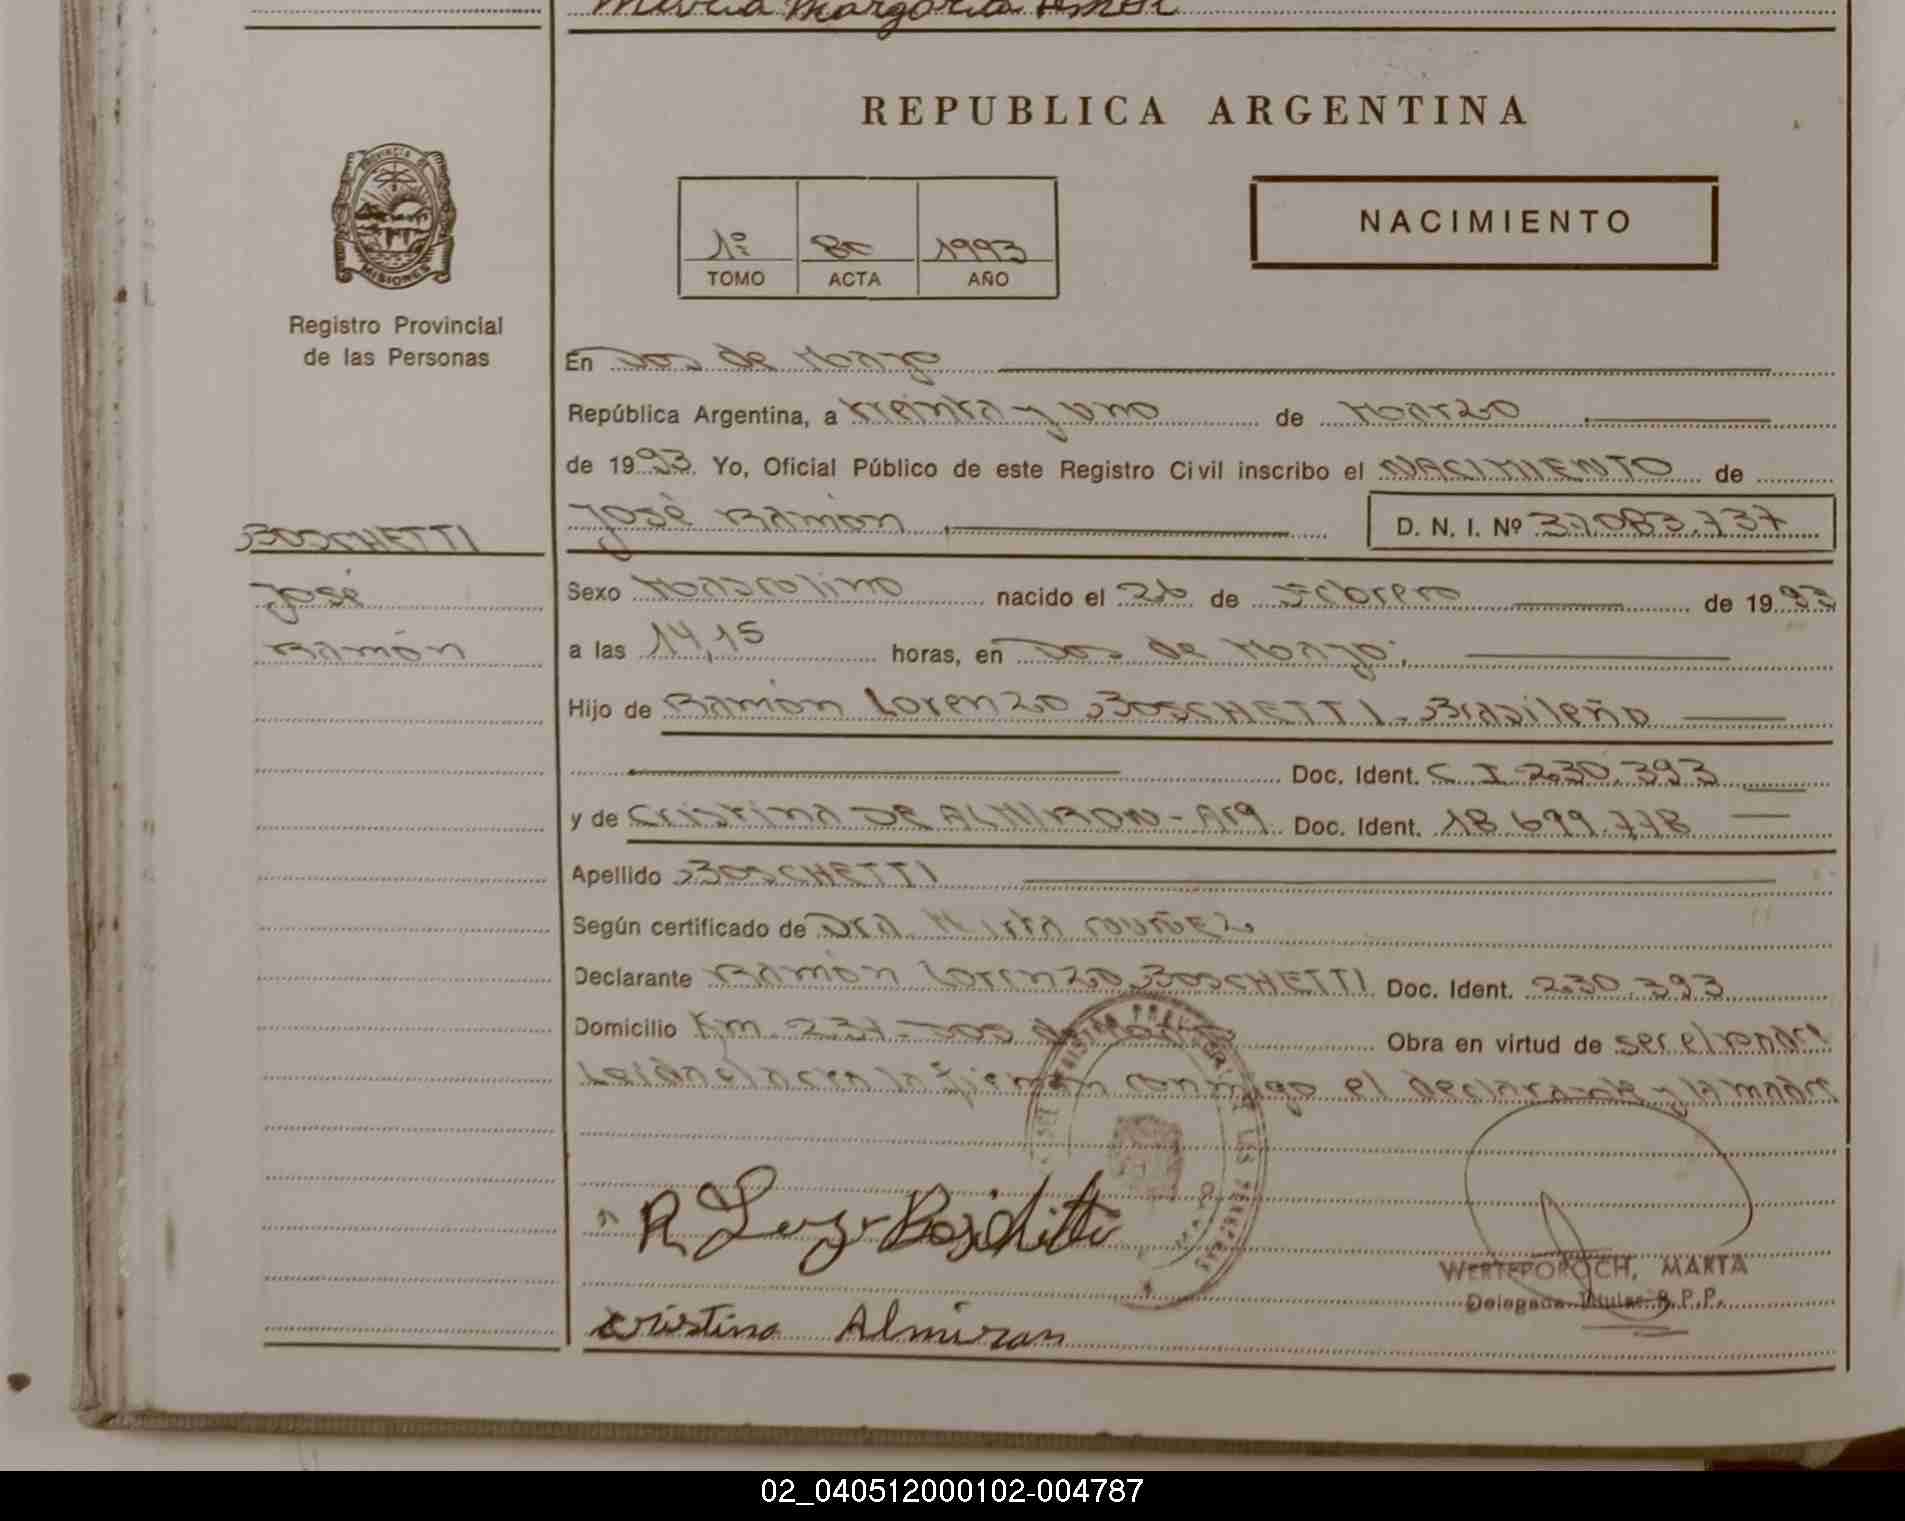 Margarita
REPUBLICA ARGENTINA
PROVINCIA DE
MISIONES
NACIMIENTO
1º 1993
TOMO ACTA AÑO
Registro Provincial
de las Personas
En Dos de Mayo
República Argentina, a treinta y uno de Marzo
de 1993. Yo, Oficial Público de este Registro Civil inscribo el NACIMIENTO de
José Ramón D. N. I. Nº 37.083.737
BOSCHETTI
José
Ramón
Sexo Masculino nacido el 26 de Febrero de 1993
a las 14,15 horas, en Dos de Mayo.
Hijo de Ramón Lorenzo BOSCHETTI - Brasileño
Doc. Ident. C I 230.393
y de Cristina DE ALMIRON - Arg. Doc. Ident. 18.699.778
Apellido BOSCHETTI
Según certificado de Dra. Mirta
Declarante Ramón Lorenzo BOSCHETTI Doc. Ident. 230.393
Domicilio Km. 237 - Dos de Mayo Obra en virtud de ser el Padre
Leída el acta la firman conmigo el declarante y la madre
R Boschetti
WERTEPOROCH, MARTA
Delegada Titular R.P.P.
Cristina Almiron
02_040512000102-004787